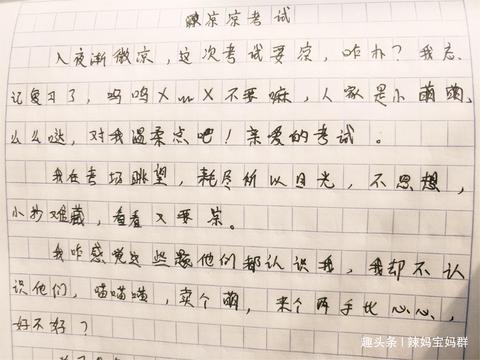 凉凉考试
入夜渐微凉，这次考试要凉，咋办？我忘
记复习了，呜呜XmX不要嘛，人家是小萌萌，
么么哒，对我温柔点吧！亲爱的考试。
我在考场眺望，耗尽所以目光，不思想，
小抄难藏，看看又要凉。
我咋感觉这些题他们都认识我，我却不认
识他们，喵喵噗，卖个萌，来个两手比心心，
好不好？
趣头条|辣妈宝妈群